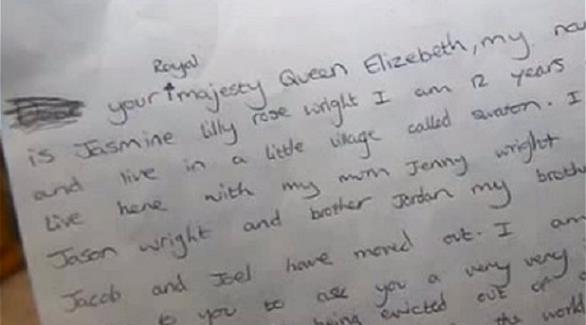 Royal
your majesty Queen Elizebeth, my
is Jasmine lilly rose wright I am 12 years
and live in a little village called swaton. I
live here with my mum Jenny wright
Jason wright and brother Jordan my
Jacob and Joel have moved out. I am
to you to ask you a very very
being evicted out of
the world